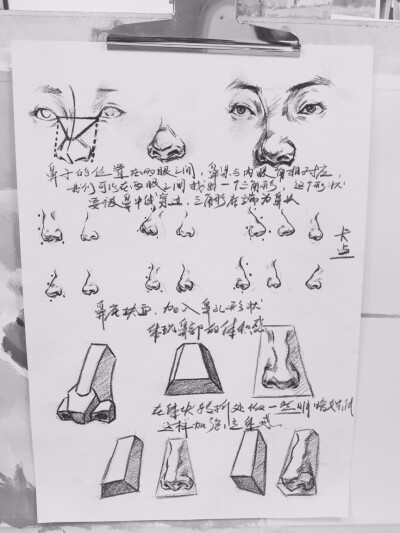 鼻子的位置在两眼之间，鼻翼与内眼角相对应，
我们可以在两眼之间找出一个三角形，这个形状
要被鼻中线穿过，三角形底端为鼻状
卡点
鼻底块面，加入鼻孔形状
体现鼻部的体积感
在块状转折处做一些明暗关系
这样加强立体感